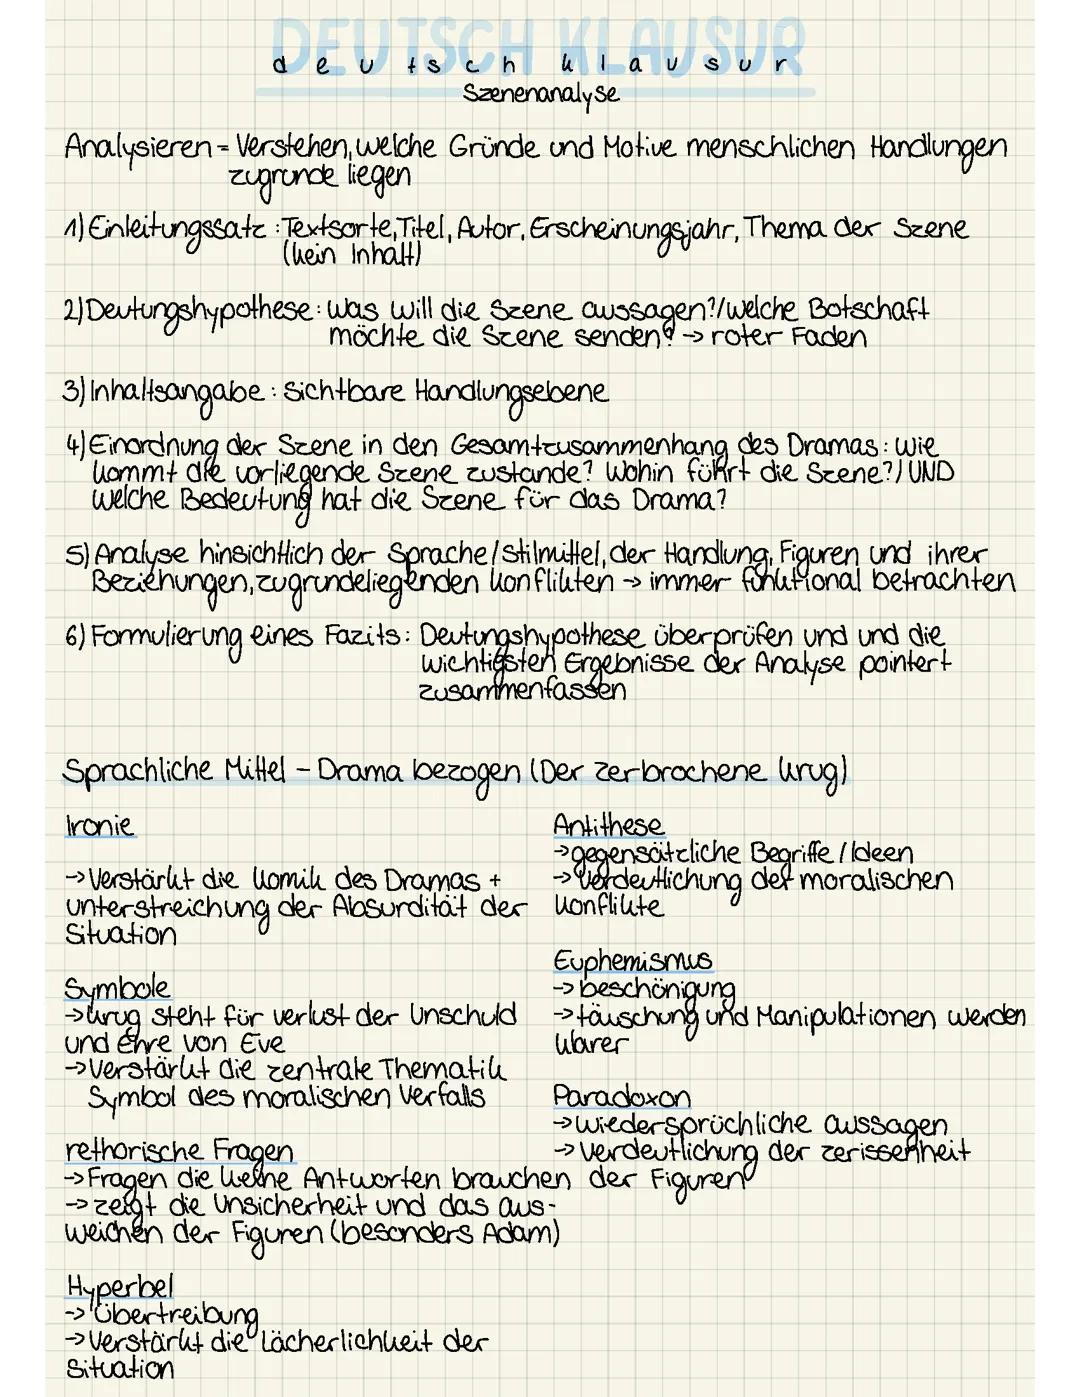 DEUTSCH KLAUSUR
deutsch klausur
Szenenanalyse
Analysieren = Verstehen, welche Gründe und Motive menschlichen Handlungen
zugrunde liegen
1) Einleitungssatz : Textsorte, Titel, Autor, Erscheinungsjahr, Thema der Szene
(kein Inhalt)
2) Deutungshypothese : Was will die Szene aussagen?/welche Botschaft
möchte die Szene senden? → roter Faden
3) Inhaltsangabe : Sichtbare Handlungsebene
4) Einordnung der Szene in den Gesamtzusammenhang des Dramas : Wie
kommt die vorliegende Szene zustande? Wohin führt die Szene?/ UND
welche Bedeutung hat die Szene für das Drama?
5) Analyse hinsichtlich der Sprache/Stilmittel, der Handlung, Figuren und ihrer
Beziehungen, zugrundeliegenden Konflikten → immer funktional betrachten
6) Formulierung eines Fazits : Deutungshypothese überprüfen und und die
wichtigsten Ergebnisse der Analyse pointert
zusammenfassen
Sprachliche Mittel – Drama bezogen (Der zerbrochene Krug)
Ironie
→ Verstärkt die Komik des Dramas +
unterstreichung der Absurdität der
Situation
Symbole
→ Krug steht für verlust der Unschuld
und Ehre von Eve
→ Verstärkt die zentrale Thematik
Symbol des moralischen Verfalls
rethorische Fragen
→ Fragen die keine Antworten brauchen
→ zeigt die Unsicherheit und das aus-
weichen der Figuren (besonders Adam)
Hyperbel
→ Übertreibung
→ Verstärkt die Lächerlichkeit der
Situation
Antithese
→ gegensätzliche Begriffe / Ideen
→ Verdeutlichung der moralischen
Konflikte
Euphemismus
→ beschönigung
→ täuschung und Manipulationen werden
klarer
Paradoxon
→ wiedersprüchliche aussagen
→ Verdeutlichung der zerissenheit
der Figuren